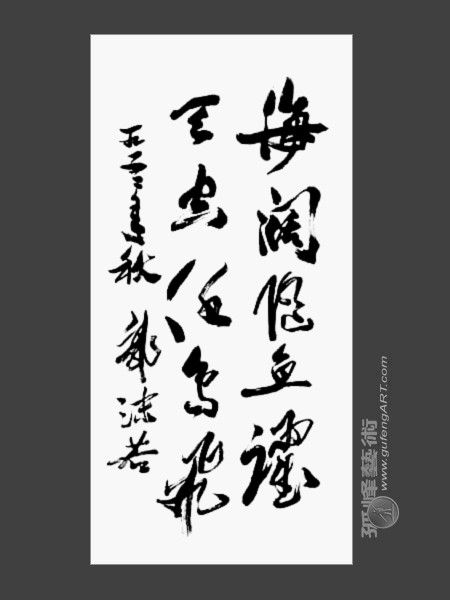 海阔凭鱼跃
天空任鸟飞
一九六二年秋 郭沫若
孤峰藝術
www.gufengART.com